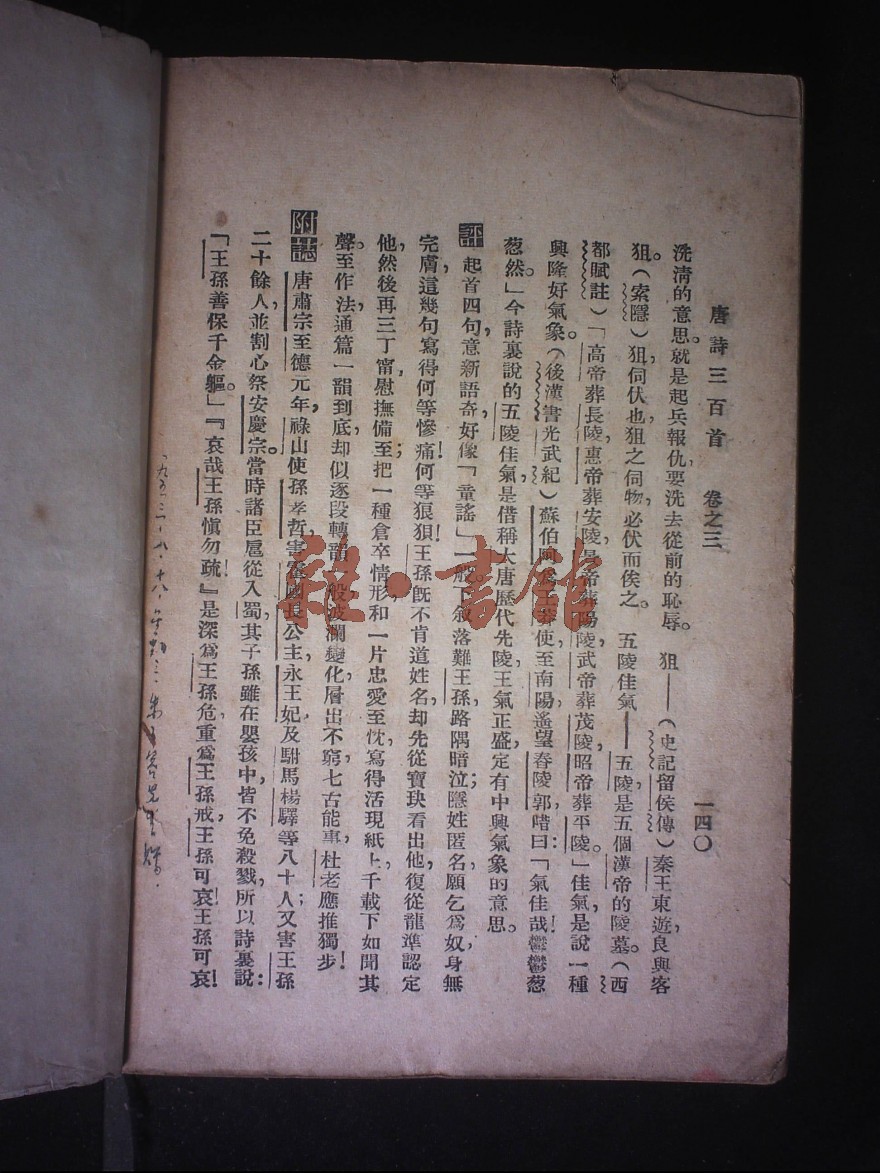 唐詩三百首　卷之三　一四〇
洗清的意思。就是起兵報仇，要洗去從前的恥辱。　狙——（史記留侯傳）秦王東遊，良與客
狙。（索隱）狙，伺伏也，狙之伺物，必伏而俟之。　五陵佳氣——五陵，是五個漢帝的陵墓。（西
都賦註）「高帝葬長陵，惠帝葬安陵，景帝葬陽陵，武帝葬茂陵，昭帝葬平陵。」佳氣，是說一種
興隆好氣象。（後漢書光武紀）蘇伯阿爲王莽使至南陽，遙望舂陵郭，唶曰：「氣佳哉！鬱鬱葱
葱然。」今詩裏說的五陵佳氣，是借稱大唐歷代先陵，王氣正盛，定有中興氣象的意思。
評　起首四句，意新語奇，好像「童謠」一般。下叙落難王孫，路隅暗泣；隱姓匿名，願乞爲奴，身無
完膚，這幾句寫得何等慘痛！何等狼狽！王孫旣不肯道姓名，却先從寶玦看出他，復從龍準認定
他，然後再三丁甯，慰撫備至；把一種倉卒情形，和一片忠愛至忱，寫得活現紙上，千載下如聞其
聲。至作法，通篇一韻到底，却似逐段轉韻一般，波瀾變化，層出不窮，七古能事，杜老應推獨步！
附誌　唐肅宗至德元年，祿山使孫孝哲害霍國長公主，永王妃，及駙馬楊驛等八十人；又害王孫
二十餘人，並割心祭安慶宗。當時諸臣扈從入蜀，其子孫雖在嬰孩中，皆不免殺戮，所以詩裏說：
「王孫善保千金軀。」『哀哉王孫愼勿疏！』是深爲王孫危，重爲王孫戒，王孫可哀！王孫可哀！
雜·書館